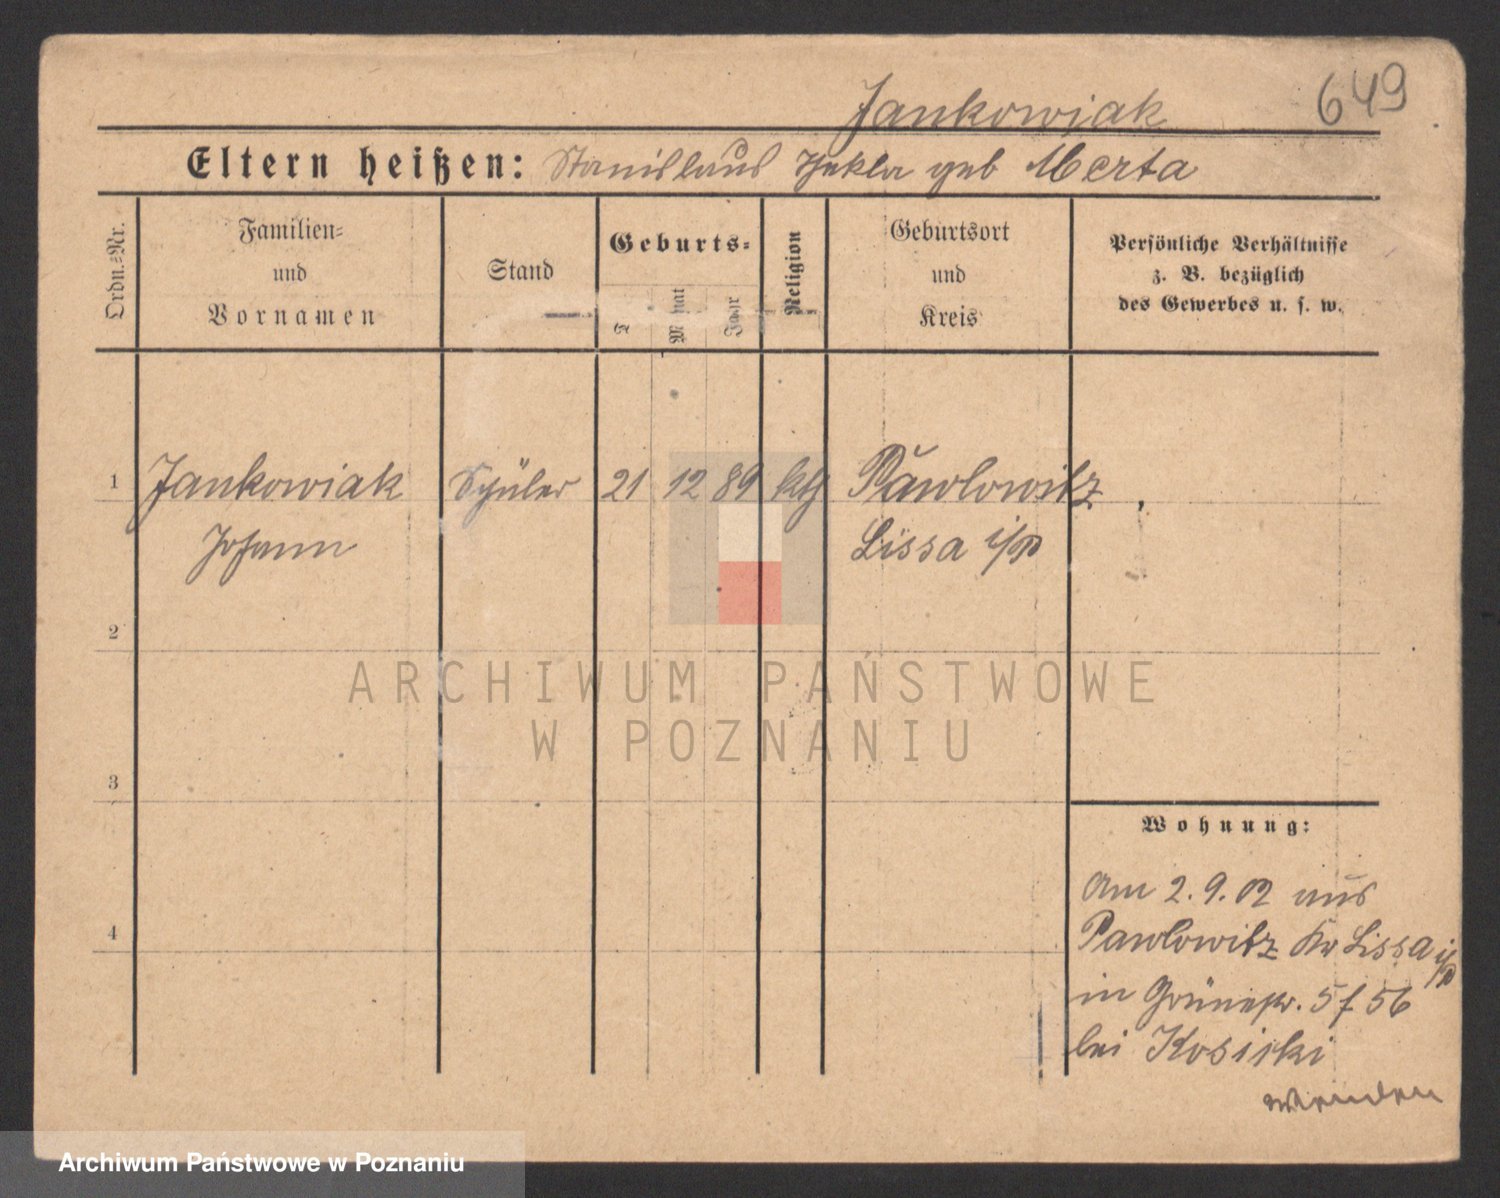 649
Jankowiak
Eltern heißen: Stanislaus Thekla geb Merta
Ordn.=Nr.
Familien=
und
Vornamen
Stand
Geburts=
T
Monat
Jahr
Religion
Geburtsort
und
Kreis
Persönliche Verhältnisse
z. B. bezüglich
des Gewerbes u. s. w.
1 Jankowiak Schüler 21 12 89 kth Pawlowitz
Johann Lissa i/P
2
3
4
ARCHIWUM PAŃSTWOWE
W POZNANIU
Wohnung:
Am 2.9.02 aus
Pawlowitz Kr Lissa i/P
in Grünestr. 5 f 56
bei Kosicki
wenden
Archiwum Państwowe w Poznaniu